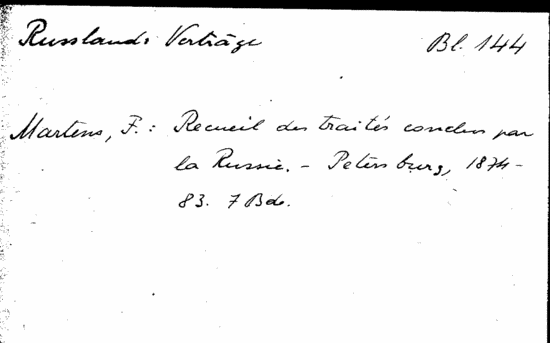 Russlands Verträge
Bl. 144
Martens, F.: Recueil des traités conclus par
la Russie. - Petersburg, 1874-
83. 7 Bde.